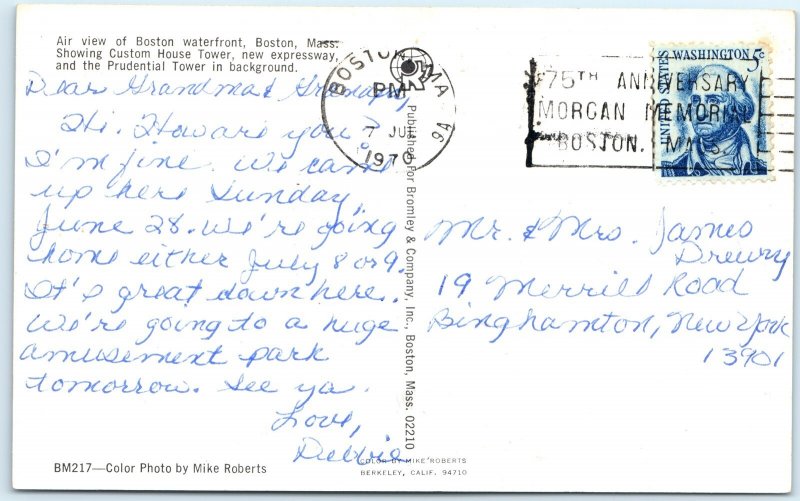 Air view of Boston waterfront, Boston, Mass.
Showing Custom House Tower, new expressway,
and the Prudential Tower in background.
Dear Grandma & Grandpa,
Hi. How are you?
I'm fine. We came
up here Sunday,
June 28. We're going
home either July 8 or 9.
It's great down here.
We're going to a huge
amusement park
tomorrow. See ya.
Love,
Debbie
BM217—Color Photo by Mike Roberts
Published For Bromley & Company, Inc., Boston, Mass. 02210
COLOR BY MIKE ROBERTS
BERKELEY, CALIF. 94710
BOSTON MA
PM
7 JUL
1970
9A
75TH ANNIVERSARY
MORGAN MEMORIAL
BOSTON, MASS
WASHINGTON 5c
UNITED STATES
Mr. & Mrs. James
Drewry
19 Merrill Road
Binghamton, New York
13901